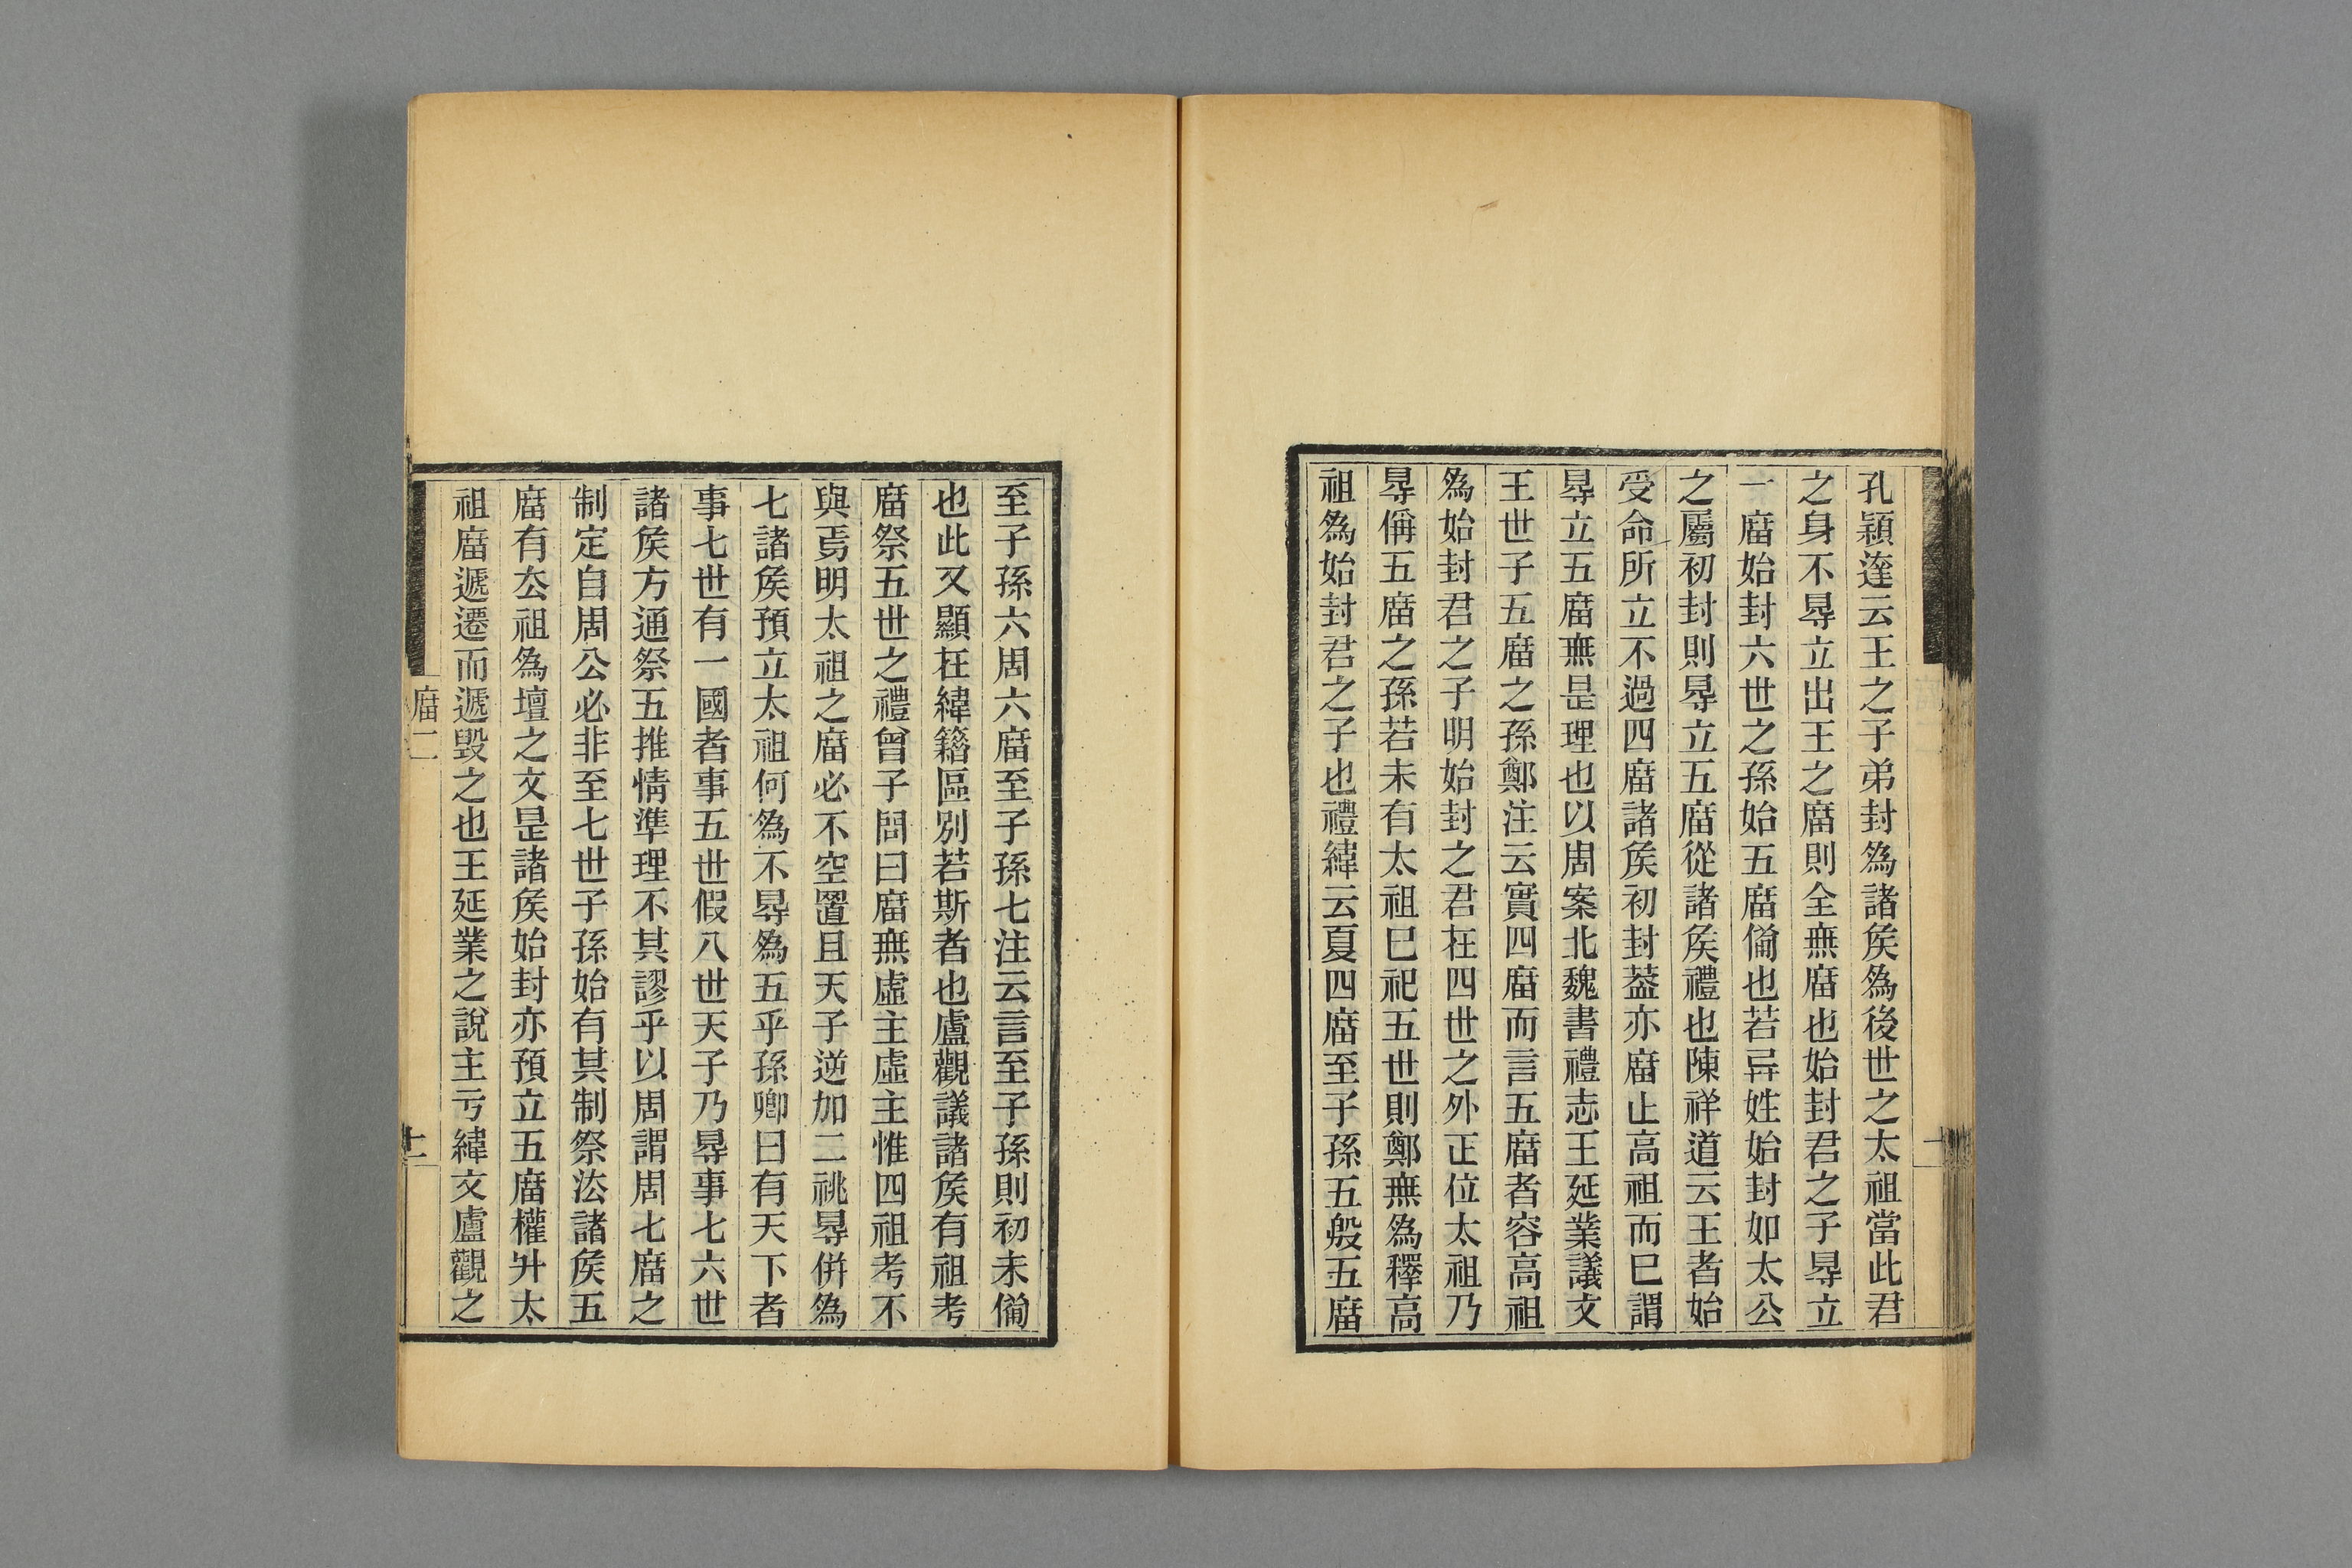 孔穎達云王之子弟封爲諸矦爲後世之太祖當此君
之身不㝵立出王之庿則全無庿也始封君之子㝵立
一庿始封六世之孫始五庿備也若异姓始封如太公
之屬初封則㝵立五庿從諸矦禮也陳祥道云王者始
受命所立不過四庿諸矦初封葢亦庿止高祖而巳謂
㝵立五庿無是理也以周案北魏書禮志王延業議文
王世子五庿之孫鄭注云實四庿而言五庿者容高祖
爲始封君之子明始封之君在四世之外正位太祖乃
㝵偁五庿之孫若未有太祖巳祀五世則鄭無爲釋高
祖爲始封君之子也禮緯云夏四庿至子孫五殷五庿
至子孫六周六庿至子孫七注云言至子孫則初未備
也此又顯在緯籍區別若斯者也盧觀議諸矦有祖考
庿祭五世之禮曾子問曰庿無虛主虛主惟四祖考不
與焉明太祖之庿必不空置且天子逆加二祧㝵併爲
七諸矦預立太祖何爲不㝵爲五乎孫卿曰有天下者
事七世有一國者事五世假八世天子乃㝵事七六世
諸矦方通祭五推情準理不其謬乎以周謂周七庿之
制定自周公必非至七世子孫始有其制祭法諸矦五
庿有去祖爲壇之文是諸矦始封亦預立五庿權升太
祖庿遞遷而遞毀之也王延業之說主亏緯文盧觀之
庿二
十二